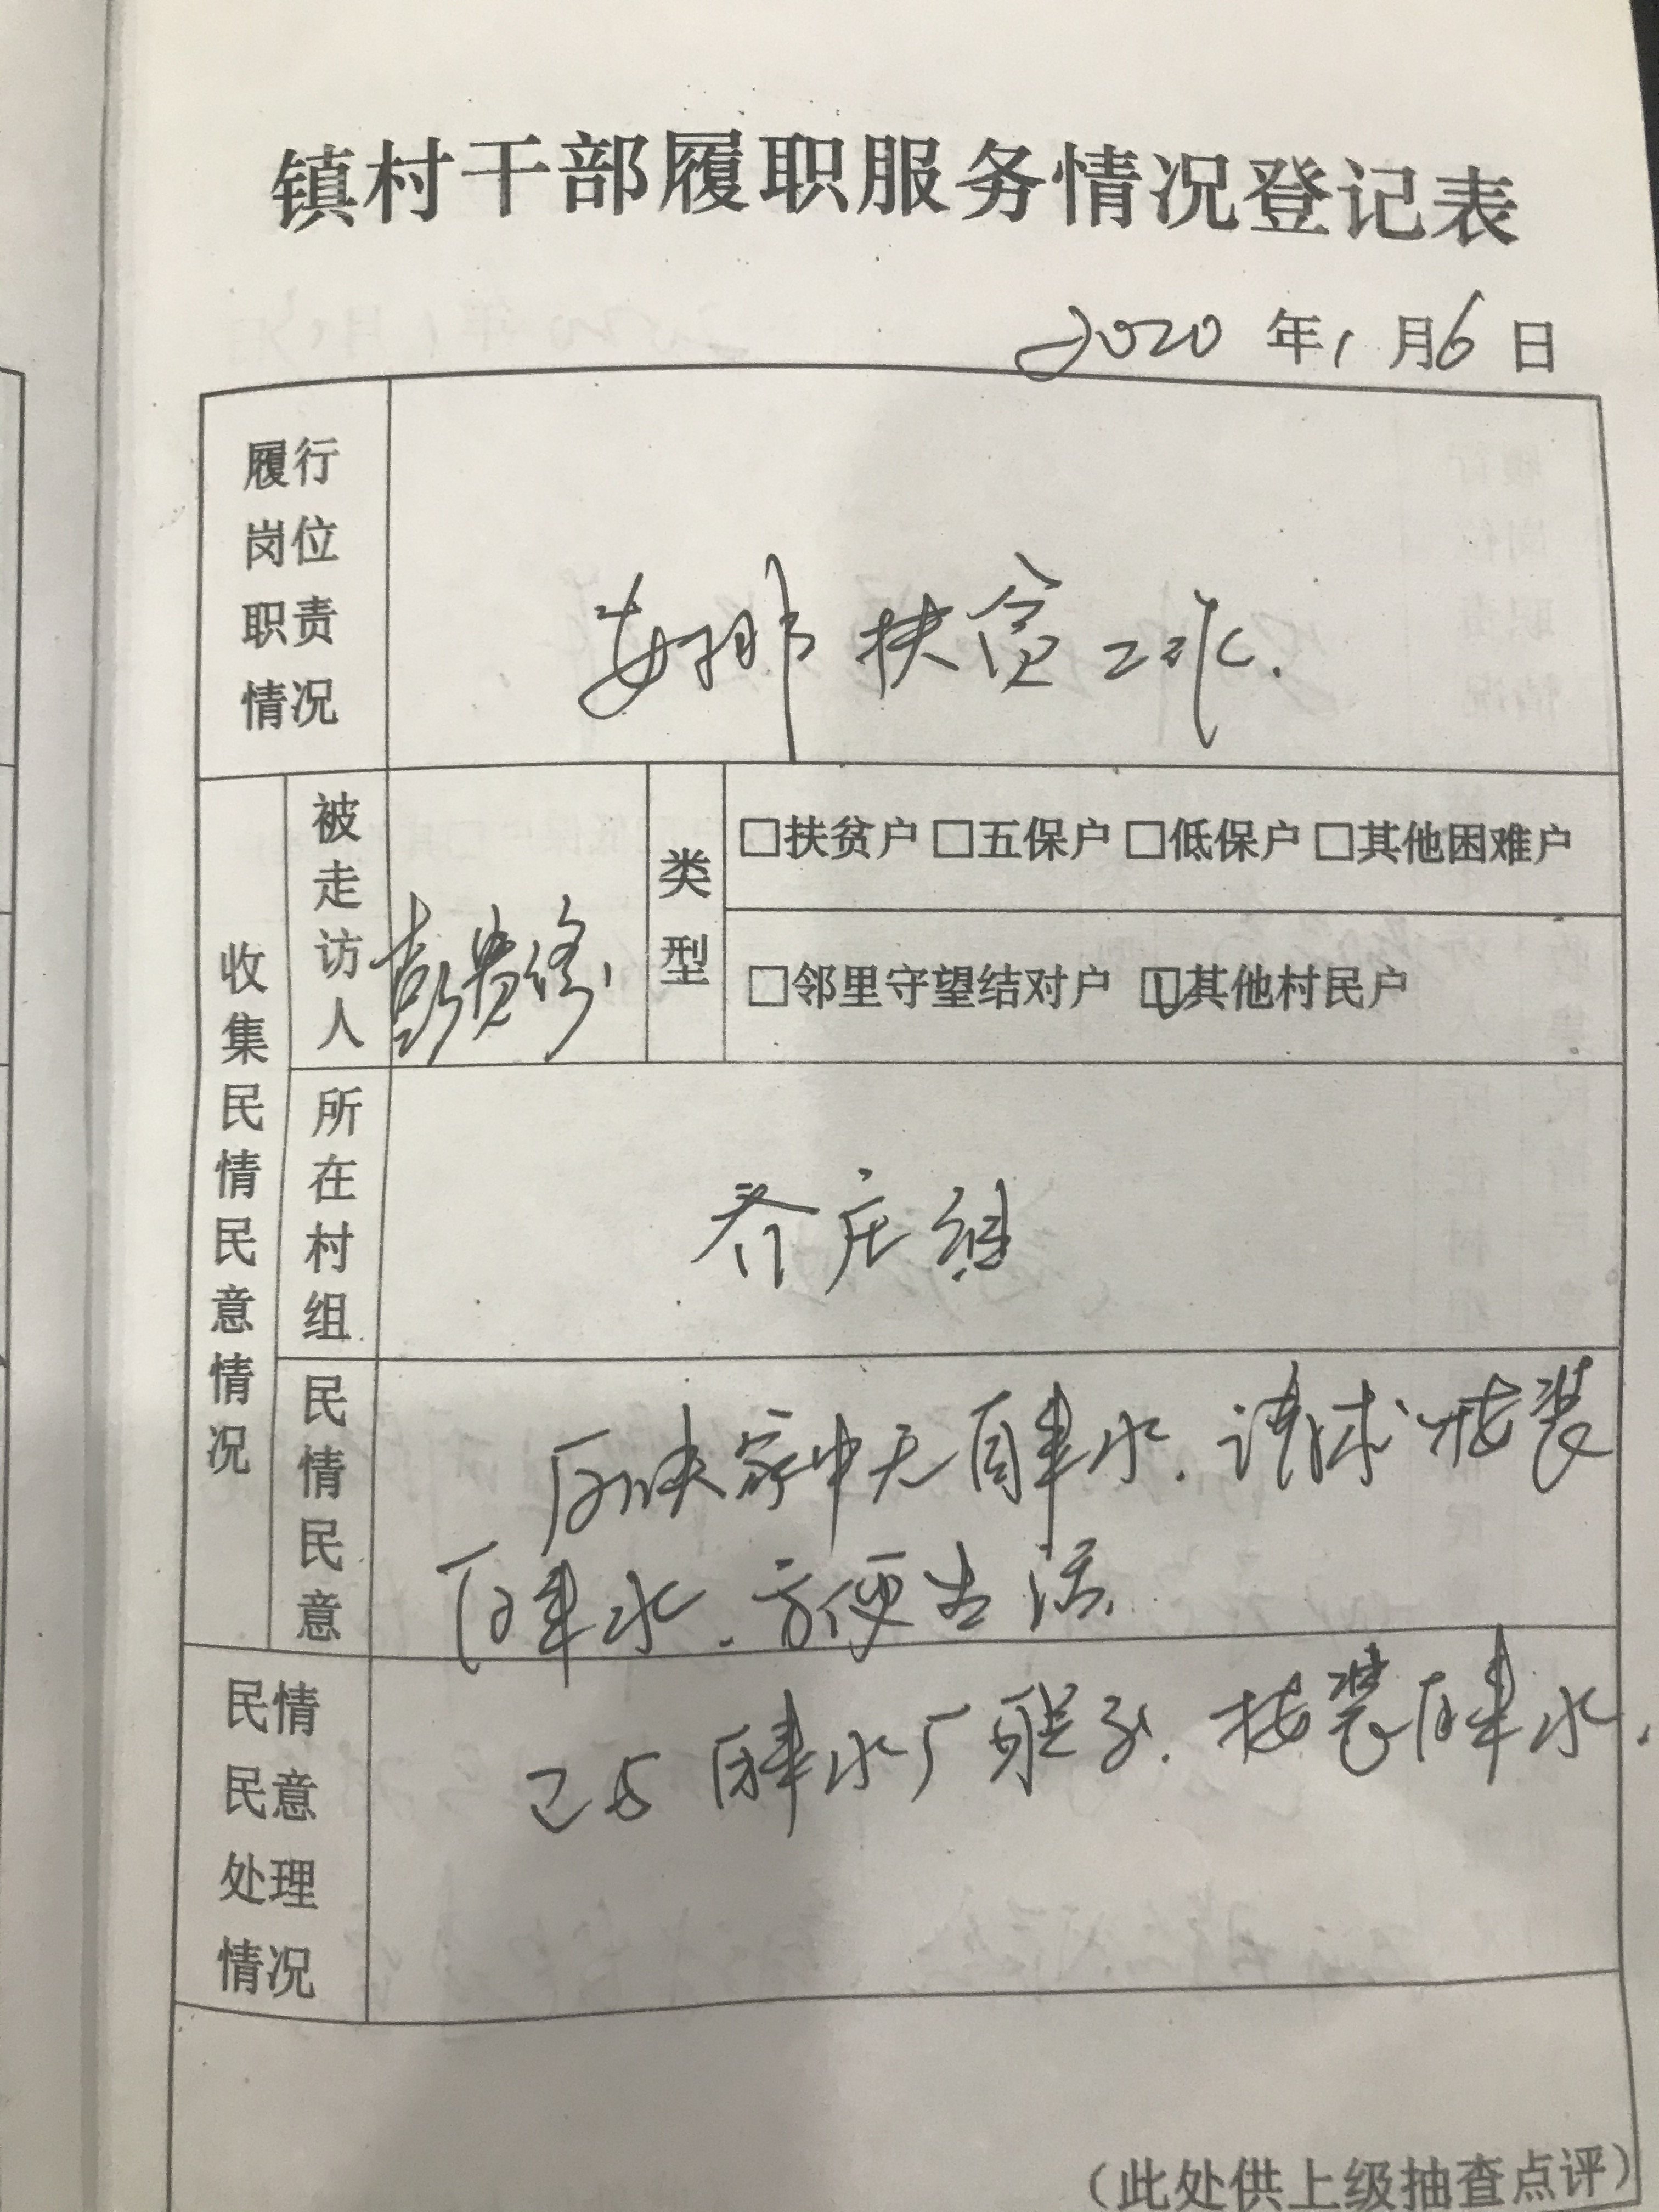 镇村干部履职服务情况登记表
2020年1月6日
履行
岗位
职责
情况
安排扶贫工作.
收集民情民意情况
被走访人
彭贵修
类型
□扶贫户 □五保户 □低保户 □其他困难户
□邻里守望结对户 ☑其他村民户
所在村组
乔庄组
民情民意
反映家中无自来水.请求按装
自来水.方便生活
民情
民意
处理
情况
已与自来水厂联系.按装自来水.
（此处供上级抽查点评）